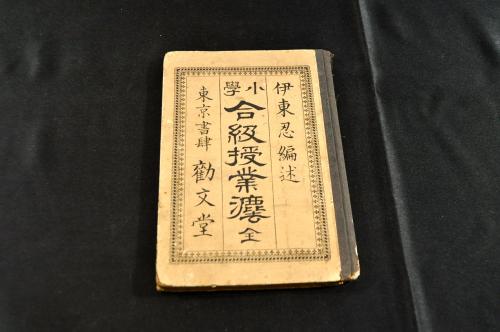 伊東忍編述
小學
合級授業灋全
東京書肆 勸文堂